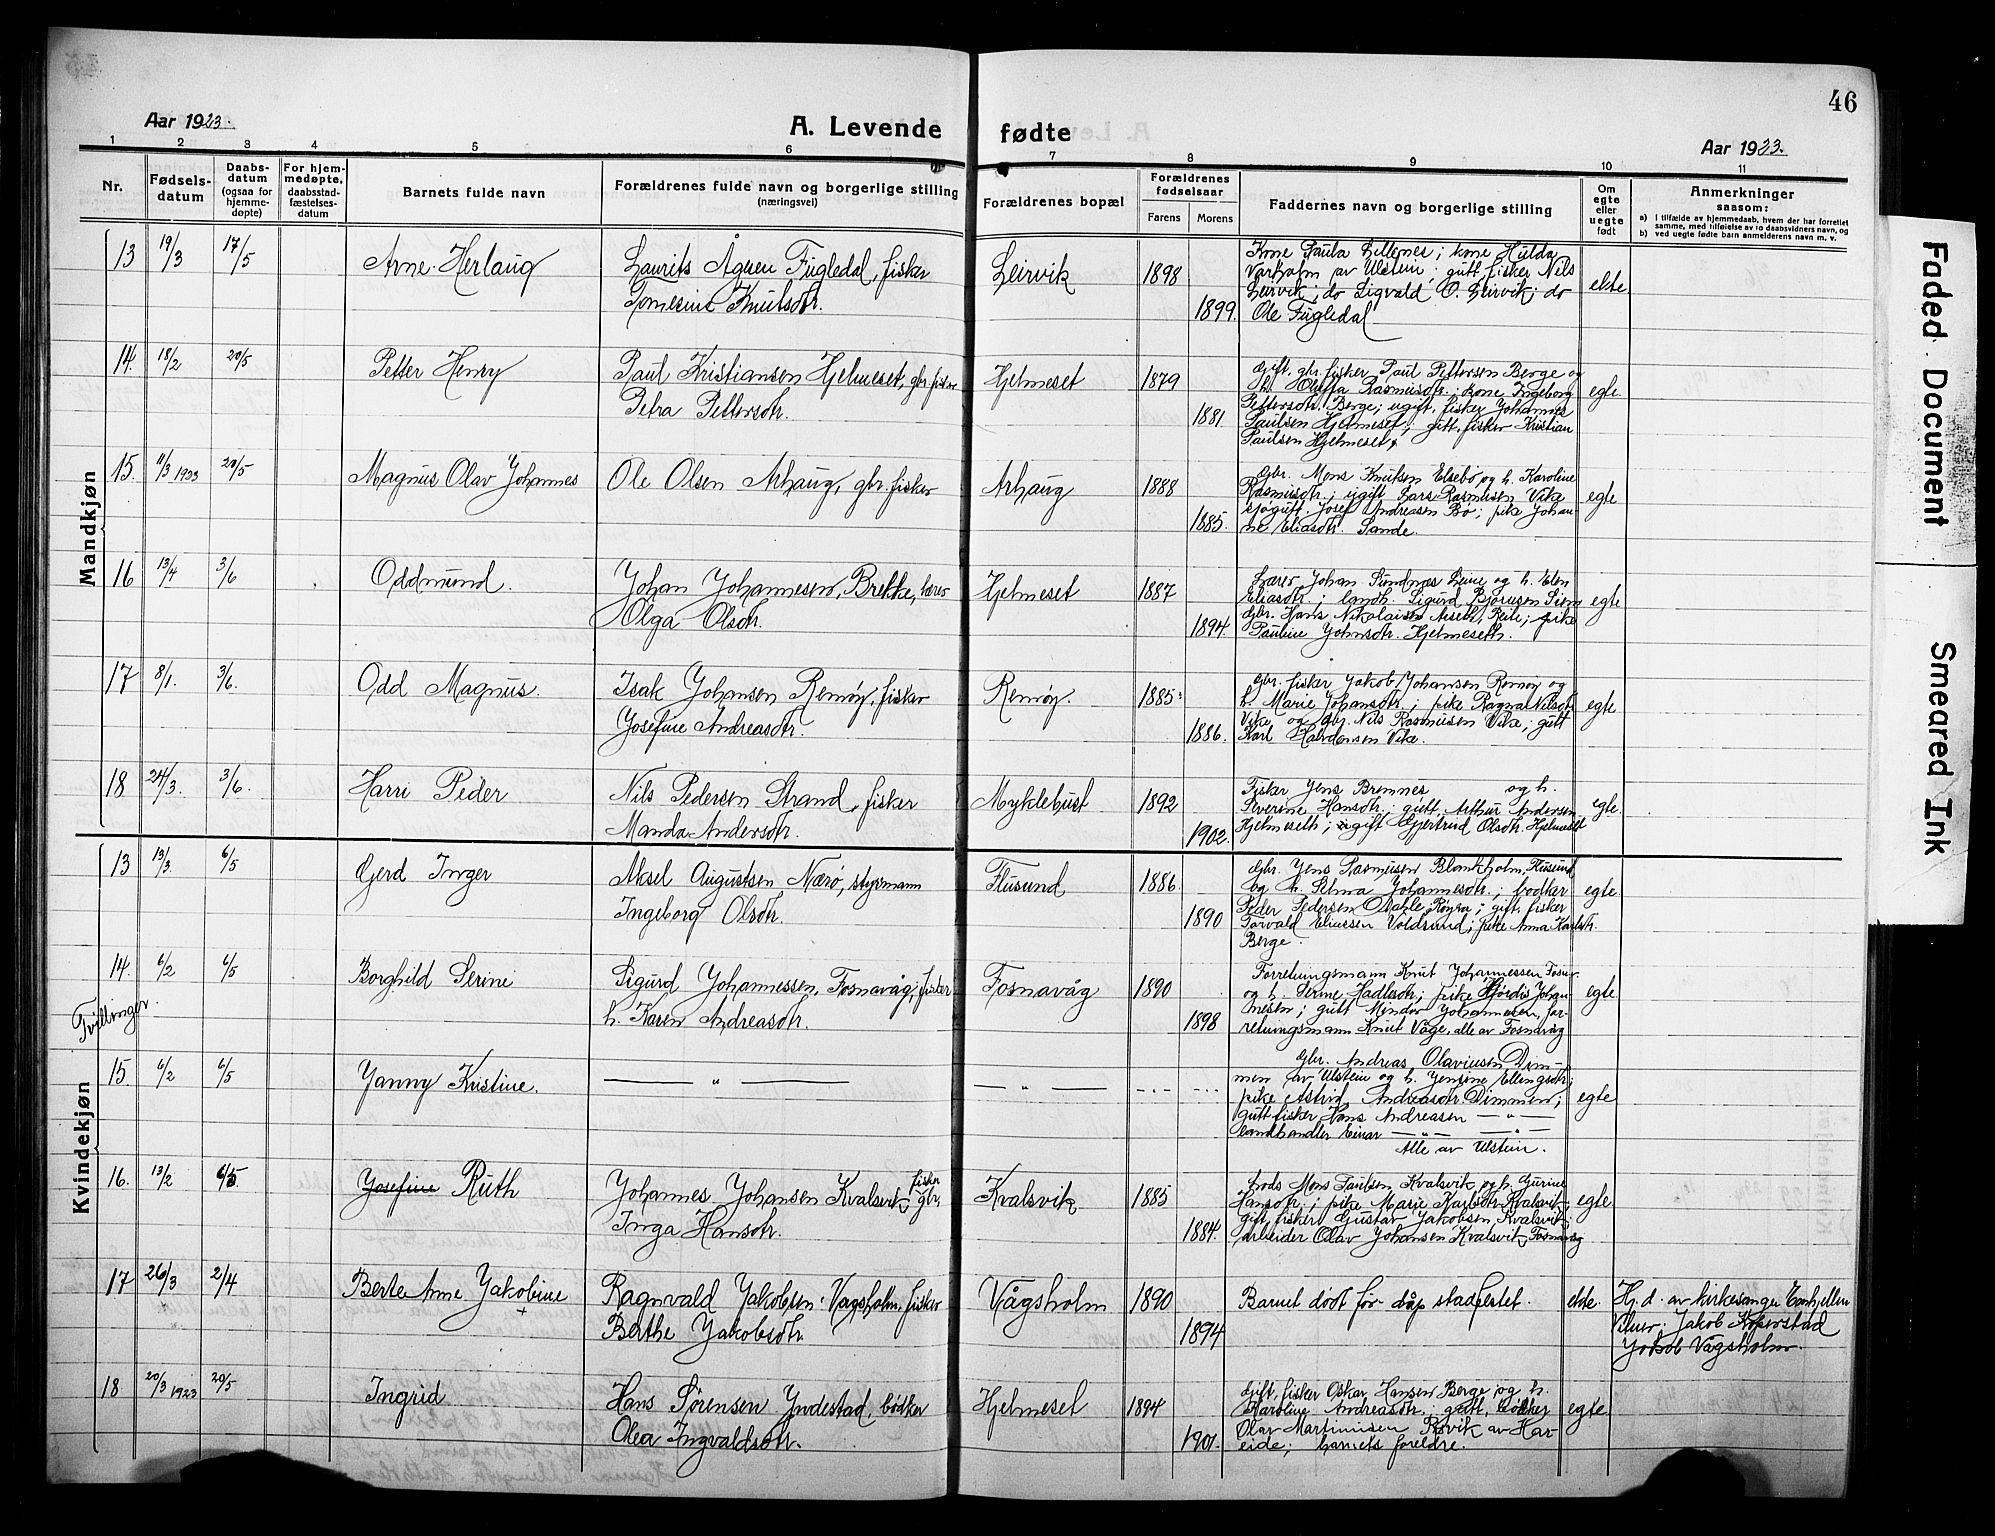 46
Aar 1923.
A. Levende fødte
Aar 1923.
1 2 3 4 5 6 7 8 9 10 11
Nr.
Fødsels-
datum
Daabs-
datum
(ogsaa for
hjemme-
døpte)
For hjem-
medøpte,
daabsstad-
fæstelses-
datum
Barnets fulde navn
Forældrenes fulde navn og borgerlige stilling
(næringsvei)
Forældrenes bopæl
Forældrenes
fødselsaar
Farens Morens
Faddernes navn og borgerlige stilling
Om
egte
eller
uegte
født
Anmerkninger
saasom:
a) i tilfælde av hjemmedaab, hvem der har forrettet
samme, med tilføielse av to daabsvidners navn, og
b) ved uegte fødte barn anmelderens navn m. v.
Mandkjøn
13 19/3 17/5 Arne Herlaug
Laurits Ågsen Fugledal, fisker
Tomesine Knutsdtr.
Leirvik 1898
1899.
Kone Paula Lillenes; kone Hulda
Varholm av Ulstein; gutt, fisker Nils
Leirvik; do Sigvald O. Leirvik; do
Ole Fugledal
ekte
14. 18/2 20/5 Petter Henry
Paul Kristiansen Hjelmeset, gbr. fisker
Petra Pettersdtr.
Hjelmeset 1879
1881
Gift, gbr. fisker Paul Pettersen Berge og
h. Oluffa Rasmusdtr.; kone Ingeborg
Pettersdtr. Berge; ugift, fisker Johannes
Paulsen Hjelmeset; gutt, fisker Kristian
Paulsen Hjelmeset
egte
15. 11/3 1923 20/5 Magnus Olav Johannes
Ole Olsen Arhaug, gbr. fisker
Arhaug 1888
1885.
Gbr. Mons Knutsen Elsebø og h. Karoline
Rasmusdtr.; ugift Lars Rasmusen Vike
sjøgutt Josef Andreasen Bø; pike Johan-
ne Eliasdtr. Sande.
egte
16 13/4 3/6 Oddmund.
Johan Johannesen, Brekke, lærer
Olga Olsdtr.
Hjelmeset 1887
1894.
Lærer Johan Sundnæs Leine og h. Elen
Eliasdtr.; landh. Sigurd Bjørnsen Siem
gbr. Hans Nikolaisen Aaseth, Reite; pike
Pauline Johnsdtr. Hjelmeseth.
egte
17 8/1. 3/6. Odd Magnus.
Isak Johansen Remøy, fisker
Josefine Andreasdtr.
Remøy. 1885
1886.
Gbr. fisker Jakob Johansen Remøy og
h. Marie Johansdtr.; pike Ragna Nilsdtr.
Vike og gbr. Nils Rasmusen Vike; gutt
Karl Halvdansen Vike.
egte
18 24/3. 3/6. Harri Peder
Nils Pedersen Strand, fisker
Manda Andersdtr.
Myklebust 1892
1902.
Fisker Jens Bremnes og h.
Severine Hansdtr.; gutt Arthur Andersen
Hjelmeseth; ugift Gjertrud Olsdtr. Hjelmeset
egte.
Kvindekjøn
13 13/3. 6/5 Gerd Inger
Aksel Augustsen Nærø, styrmann
Ingeborg Olsdtr.
Flusund 1886.
1890
Gbr. Jens Rasmusen Blankholm, Flusund
og h. Selma Johannesdtr.; bødker
Peder Pedersen Dahle, Røyra; gift, fisker
Torvald Eliesen Voldsund; pike Anna Karlsdtr.
Berge.
egte
Tvillinger.
14. 6/2 6/5 Borghild Serine
Sigurd Johannessen, Fosnavåg, fisker
h. Karen Andreasdtr.
Fosnavåg 1890
1898
Forretningsmann Knut Johannessen Fosnav.
og h. Serine Hadlesdtr; pike Hjørdis Johan-
nesen; gutt Mindor Johannesen, for-
retningsmann Knut Våge, alle av Fosnavåg
egte.
15. 6/2 6/5 Janny Kristine.
— " —
— " —
Gbr. Andreas Olaviusen Dim-
men av Ulstein og h. Jensine Ellingsdtr;
pike Astrid Andreasdtr. Dimmen;
gutt fisker Hans Andreassen — " —
landhandler Einar — " — — " —
Alle av Ulstein.
egte
16. 13/2 6/5. Josefine Ruth
Johannes Johansen Kvalsvik, fisker gbr.
Inga Hansdtr.
Kvalsvik 1885
1884.
Lods Mons Paulsen Kvalsvik og h. Gurine
Hansdtr.; pike Marie Karlsdtr. Kvalsvik;
gift fisker Gustav Jakobsen, Kvalsvik;
arbeider Olav Johansen Kvalsvik, Fosnavåg
egte
17 26/3 2/4 Berte Ane Jakobine
+
Ragnvald Jakobsen Vågsholm, fisker
Berthe Jakobsdtr.
Vågsholm 1890
1894
Barnet dødt før dåp stadfestet.
ekte.
Hj. d. av kirkesanger Enhjellen
Vitner; Jakob Koperstad
Jakob Vågsholm.
18 20/3 1923 20/5 Ingrid
Hans Sørensen Yndestad, bødker
Olea Ingvaldsdtr.
Hjelmeset 1894
1901.
Gift, fisker Oskar Hansen Berge, og h.
Karoline Andreasdtr.; gutt, bødker
Olav Martinusen Røvik av Har-
eide; barnets foreldre.
egte.
Faded Document
Smeared Ink